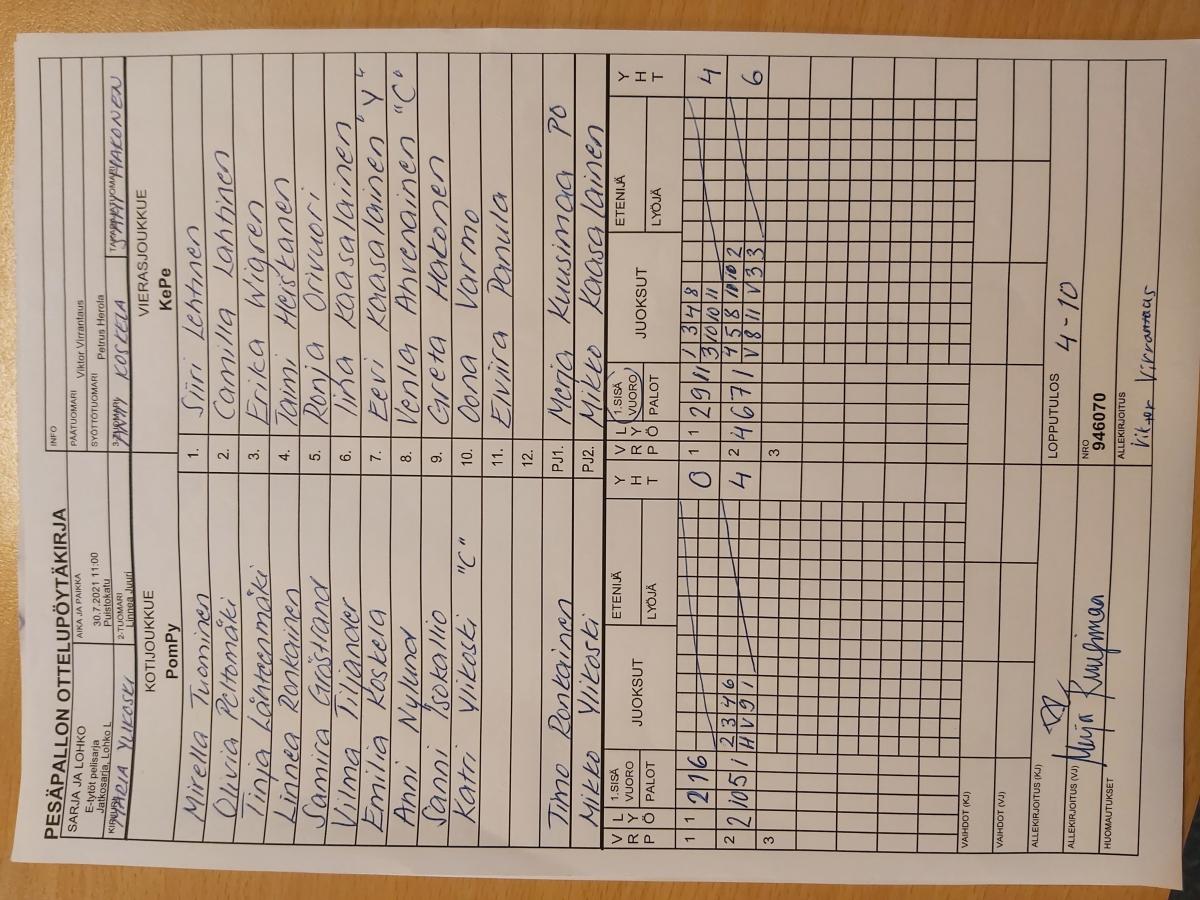 PESÄPALLON OTTELUPÖYTÄKIRJA
SARJA JA LOHKO
E-tytöt pelisarja
Jatkosarja, Lohko L
AIKA JA PAIKKA
30.7.2021 11:00
Puistokatu
INFO
PÄÄTUOMARI Viktor Virrantaus
SYÖTTÖTUOMARI Petrus Herola
KIRJURI YLIKOSKI
2-TUOMARI Linnea Juuri
KOSKELA
KOTIJOUKKUE
PomPy
VIERASJOUKKUE
KePe
Mirella Tuominen 1. Siiri Lehtinen
Olivia Peltomäki 2. Camilla Lahtinen
Tinja Lähteenmäki 3. Erika Wigren
Linnea Ronkainen 4. Taimi Heiskanen
Samira Gröstrand 5. Ronja Orivuori
Vilma Tiljander 6. Iina Kaasalainen
Emilia Koskela 7. Eevi Kaasalainen "Y"
Anni Nylund 8. Venla Ahvenainen "C"
Sanni Isokallio 9. Greta Hakonen
Katri Ylikoski "C" 10. Oona Varmo
11. Elviira Panula
12.
Timo Ronkainen PJ1. Merja Kuusimaa PO
Mikko Ylikoski PJ2. Mikko Kaasalainen
V R P L Y Ö 1.SISÄ VUORO PALOT JUOKSUT ETENIJÄ LYÖJÄ Y H T V R P L Y Ö 1.SISÄ VUORO PALOT JUOKSUT ETENIJÄ LYÖJÄ Y H T
1 1 2 1 6 0 1 1 2 9 11 1 3 4 8 4
3 10 10 11
2 2 10 5 1 2 3 4 6 4 2 4 6 7 1 4 5 8 10 10 2 6
H V 9 1 V 8 11 V 3 3
3 3
VAIHDOT (KJ)
VAIHDOT (VJ)
ALLEKIRJOITUS (KJ)
LOPPUTULOS 4-10
ALLEKIRJOITUS (VJ)
NRO
946070
HUOMAUTUKSET
ALLEKIRJOITUS
Viktor Virrantaus